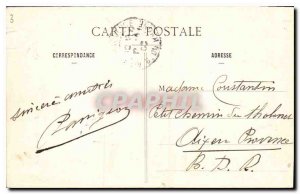 3
CARTE POSTALE
CORRESPONDANCE
ADRESSE
Madame Constantin
sincère amitiés
Petit chemin du Tholonet
Aix en Provence
B. D. R.